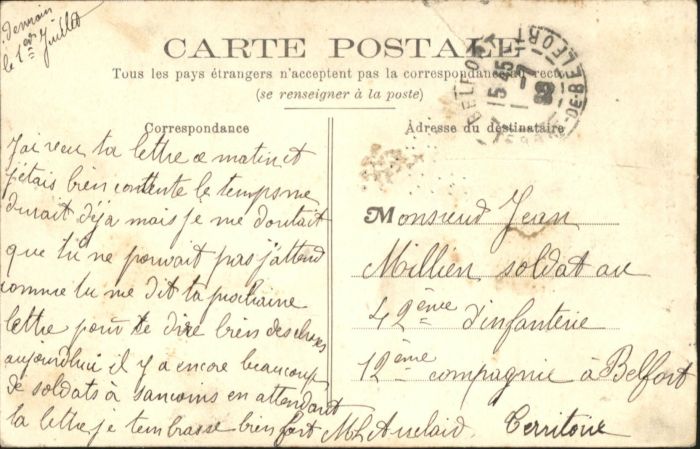 le 1er Juillet
CARTE POSTALE
Tous les pays étrangers n'acceptent pas la correspondance au recto
(se renseigner à la poste)
Correspondance
J'ai reçu ta lettre ce matin et
j'étais bien contente le temps me
durait déja mais je me doutait
que tu ne pouvait pas j'attend
comme tu me dit ta prochaine
lettre pour te dire bien des choses
aujourdhui il y a encore beaucoup
de soldats à sancoins en attendant
ta lettre je tembrasse bien fort ML
Adresse du destinataire
Monsieur Jean
Millien soldat au
42ème d'infanterie
12ème compagnie à Belfort
Territoire
BELFORT
5 45
DE-BELFORT